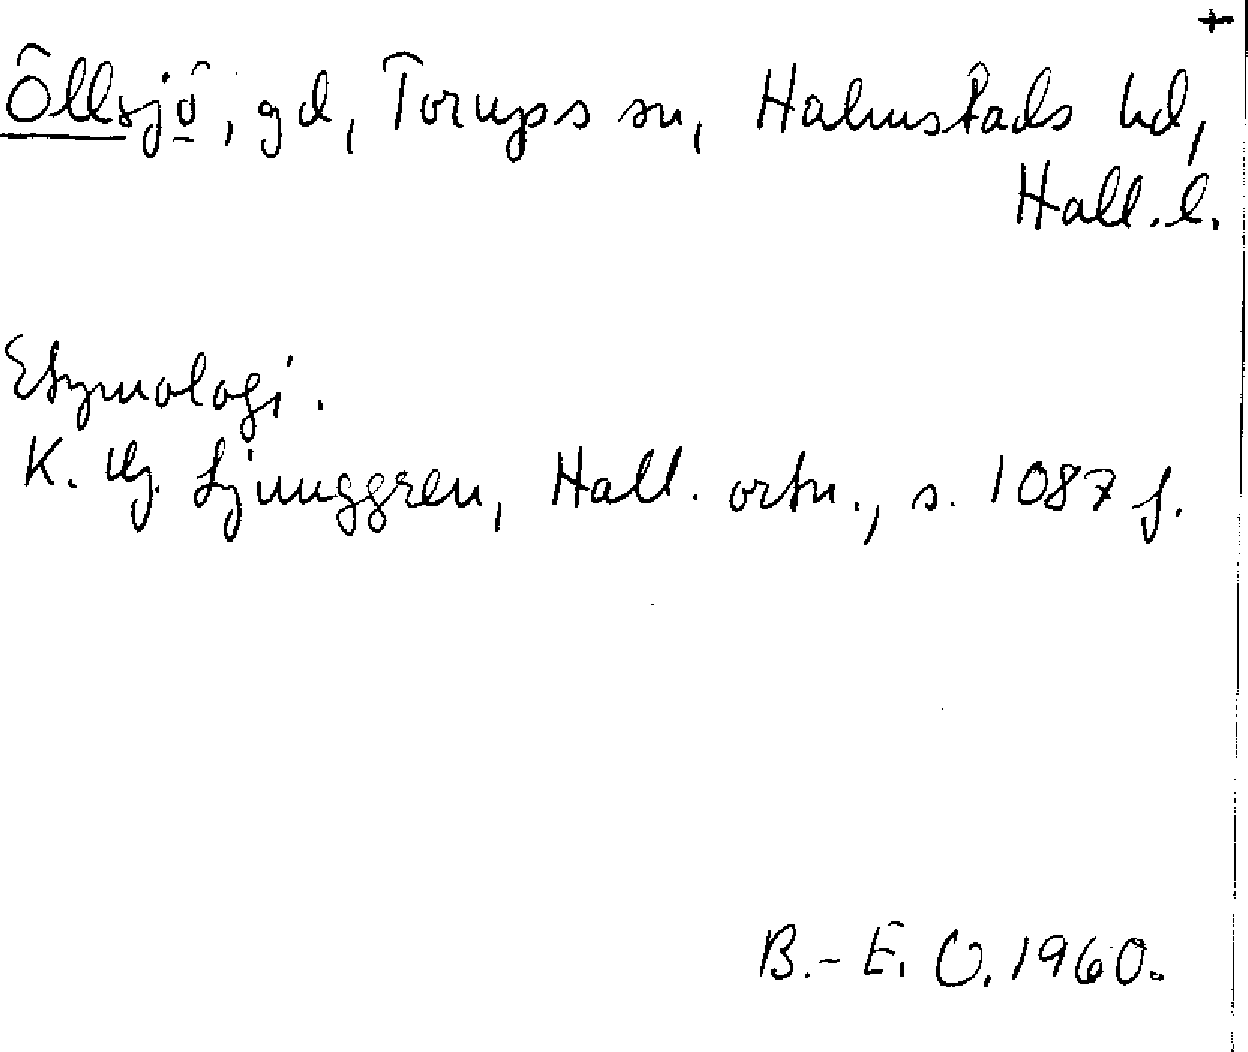 +
Öllsjö, gd, Torups sn, Halmstads hd,
Hall. l.
Etymologi.
K. G. Ljunggren, Hall. ortn., s. 1087 f.
B.-E. O. 1960.